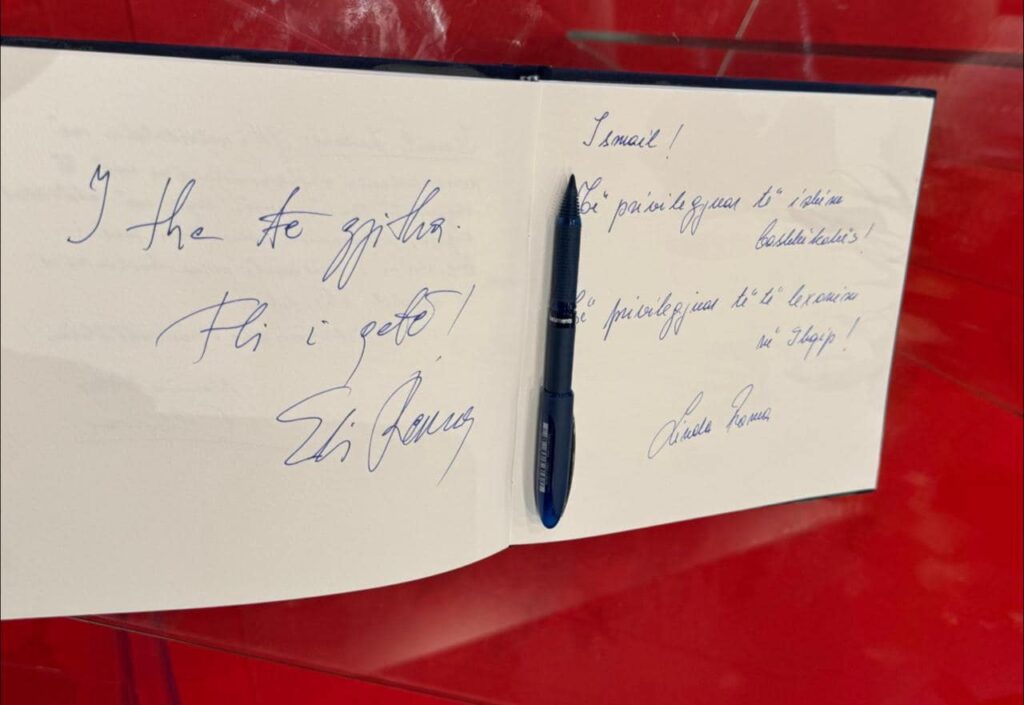 I tha të gjitha.
Fli i qetë!
Eli
Ismail!
Të privilegjuar të ishim
bashkëkohës!
privilegjuar të të lexonim
në Shqip!
Linda Rama